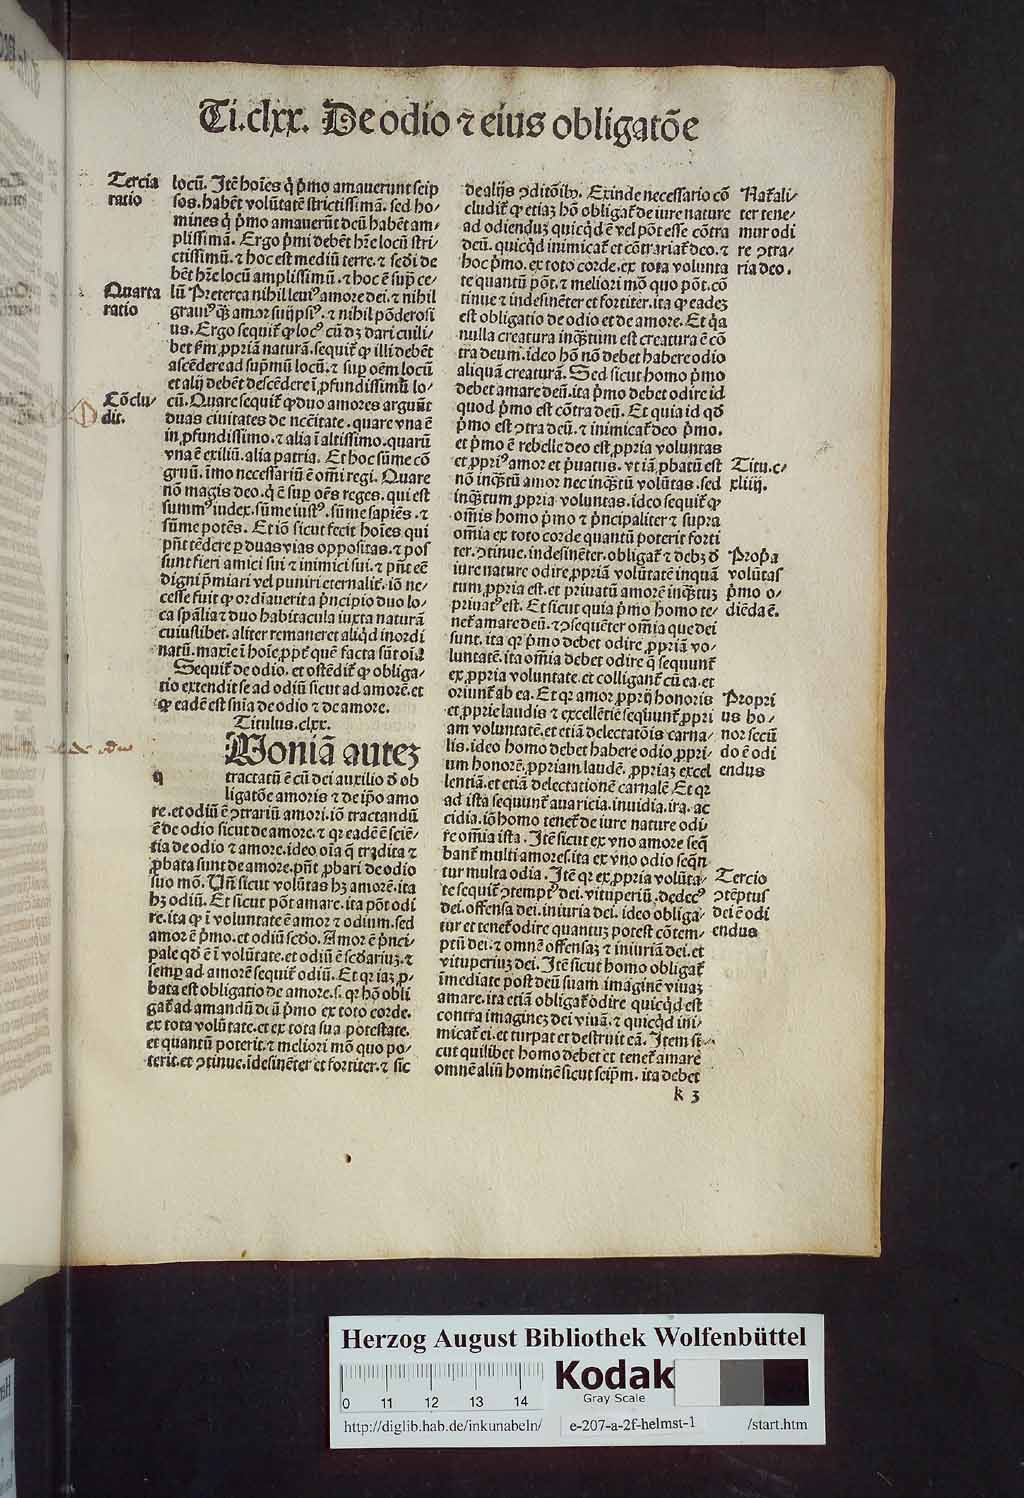 Ti.clxx. De odio ⁊ eius obligatõe
Tercia
ratio
Quarta
ratio
Cõclu/
dit.
locũ. Itẽ hoĩes q̇ p̃mo amauerunt seip
sos. habẽt volũtatẽ strictissimã. sed ho/
mines q̇ p̃mo amauerũt deũ habẽt am/
plissimã. Ergo p̃mi debẽt hr̃e locũ stri/
ctissimũ. ⁊ hoc est mediũ terre. ⁊ sedi de
bẽt hr̃e locũ amplissimũ. ⁊ hoc ẽ suꝑ ce/
lũ Preterea nihil leuiꝰ amore dei. ⁊ nihil
grauiꝰ q̃ꝫ amor suijpsiꝰ. ⁊ nihil põderosi
us. Ergo sequit᷑ ꝙ locꝰ cũ dꝫ dari cuili/
bet ẜm ꝓpriã naturã. sequit᷑ ꝙ illi debẽt
ascẽdere ad sup̃mũ locũ. ⁊ suꝑ oẽm locũ
et alij debẽt descẽdere ĩ ꝓfundissimũ lo/
cũ. Quare sequit᷑ ꝙ duo amores arguũt
duas ciuitates de nccẽitate. quare vna ẽ
in ꝓfundissimo. ⁊ alia ĩ altissimo. quarũ
vna ẽ exiliũ. alia patria. Et hoc sũme cõ
gruũ. ĩmo necessariũ ẽ om̃i regi. Quare
nõ magis deo. q̇ ẽ suꝑ oẽs reges. qui est
summꝰ iudex. sũme iustꝰ. sũme sapiẽs. ⁊
sũme potẽs. Et iõ sicut fecit hoĩes qui
pñt tẽdere ꝑ duas vias oppositas. ⁊ pos
sunt fieri amici sui ⁊ inimici sui. ⁊ pñt eẽ
digni p̃miari vel puniri eternalit᷑. iõ ne/
cesse fuit ꝙ ordĩauerit a p̃ncipio duo lo/
ca spãlia ⁊ duo habitacula iuxta naturã
cuiuslibet. aliter remaneret aliq̇d inordi
natũ. maxie ĩ hoĩe ꝓpt᷑ quẽ facta sũt oĩa
Sequit᷑ de odio. et ostẽdit᷑ ꝙ obliga/
tio extendit se ad odiũ sicut ad amorẽ. et
ꝙ eadẽ est sñia de odio ⁊ de amore.
Titulus.clxx.
q Uoniã autez
tractatũ ẽ cũ dei auxilio d̉ ob
ligatõe amoris ⁊ de ip̃o amo
re. et odiũ ẽ ꝯtrariũ amori. iõ tractandũ
ẽ de odio sicut de amore. ⁊ qꝛ eadẽ ẽ sciẽ/
tia de odio ⁊ amore. ideo oĩa q̃ tradita ⁊
ꝓbata sunt de amore. pñt ꝓbari de odio
suo mõ. Uñ sicut volũtas hꝫ amorẽ. ita
hꝫ odiũ. Et sicut põt amare. ita põt odi
re. ita ꝙ ĩ voluntate ẽ amor ⁊ odium. sed
amor ẽ p̃mo. et odiũ scd̃o. Amor ẽ p̃nci/
pale qd̃ ẽ ĩ volũtate. et odiũ ẽ scd̃ariuꝫ. ⁊
semꝑ ad amorẽ sequit᷑ odiũ. Et qꝛ iaꝫ ꝓ/
bata est obligatio de amore. s. qꝛ hõ obli
gat᷑ ad amandũ deũ p̃mo ex toto corde.
ex tota volũtate. et ex tota sua potestate.
et quantũ poterit. ⁊ meliori mõ quo po/
terit. et ꝯtinue. ĩdesinẽter et fortiter. ⁊ sic
de alijs ꝯditõibꝫ. Exinde necessario cõ
cludit᷑ ꝙ etiaꝫ hõ obligat᷑ de iure nature
ad odienduꝫ quicq̇d ẽ vel põt esse cõtra
deũ. quicq̇d inimicat᷑ et cõtrariat᷑ deo. ⁊
hoc p̃mo. ex toto corde. ex tota volunta
te quantũ põt. ⁊ meliori mõ quo põt. cõ
tinue ⁊ indesinẽter et fortiter. ita ꝙ eadeꝫ
est obligatio de odio et de amore. Et q̇a
nulla creatura inq̃ꝫtum est creatura ẽ cõ
tra deum. ideo hõ nõ debet habere odio
aliquã creaturã. Sed sicut homo p̃mo
debet amare deũ. ita p̃mo debet odire id
quod p̃mo est cõtra deũ. Et quia id qd̃
p̃mo est ꝯtra deũ. ⁊ inimicat᷑ deo p̃mo.
et p̃mo ẽ rebelle deo est ꝓpria voluntas
et ꝓpriꝰ amor et p̃uatus. vt iã ꝓbatũ est
nõ inq̃ꝫtũ amor nec inq̃ꝫtũ volũtas. sed
inq̃ꝫtum ꝓpria voluntas. ideo sequit᷑ ꝙ
om̃is homo p̃mo ⁊ p̃ncipaliter ⁊ supra
om̃ia ex toto corde quantũ poterit forti
ter. ꝯtinue. indesinẽter. obligat᷑ ⁊ debꝫ d̉
iure nature odire ꝓpriã volũtatẽ inquã
tum ꝓpria est. et priuatũ amorẽ inq̃ꝫtuꝫ
priuatꝰ est. Et sicut quia p̃mo homo te/
net᷑ amare deũ. ⁊ ꝯsequẽter om̃ia que dei
sunt. ita qꝛ p̃mo debet odire ꝓpriã vo/
luntatẽ. ita om̃ia debet odire q̃ sequunt᷑
ex ꝓpria voluntate. et colligant᷑ cũ ea. et
oriunt᷑ ab ea. Et qꝛ amor ꝓprij honoris
et ꝓprie laudis ⁊ excellẽtie seq̃uunt᷑ ꝓpri
am voluntatẽ. et etiã delectatõis carna/
lis. ideo homo debet habere odio ꝓpri/
um honorẽ. ꝓpriam laudẽ. ꝓpriaꝫ excel
lentiã. et etiã delectationẽ carnalẽ Et qꝛ
ad ista sequunt᷑ auaricia. inuidia. ira. ac
cidia. iõ homo tenet᷑ de iure nature odi/
re om̃ia ista. Itẽ sicut ex vno amore seq̃
bant᷑ multi amores. ita ex vno odio seq̃n
tur multa odia. Itẽ qꝛ ex ꝓpria volũta/
te sequit᷑ ꝯtemptꝰ dei. vituperiũ. dedecꝰ
dei. offensa dei. iniuria dei. ideo obliga/
tur et tenet᷑ odire quantuꝫ potest cõtem/
ptũ dei. ⁊ omnẽ offensaꝫ ⁊ iniuriã dei. et
vituperiuꝫ dei. Itẽ sicut homo obligat᷑
ĩmediate post deũ suam imaginẽ viuaꝫ
amare. ita etiã obligat᷑ odire quicq̇d est
contra imagineꝫ dei viuã. ⁊ quicq̇d ini/
micat᷑ ei. et turpat et destruit eã. Item si/
cut quilibet homo debet et tenet᷑ amare
omnẽ aliũ hominẽ sicut seip̃m. ita debet
k 3
Nat᷑ali/
ter tene/
mur odi
re ꝯtra/
ria deo.
Titu.c/
xliiij.
Prop̃a
volũtas
p̃mo o/
diẽda ẽ.
Propri
us ho/
nor secũ
do ẽ odi
endus
Tercio
ꝯtẽptus
dei ẽ odi
endus
Herzog August Bibliothek Wolfenbüttel
Kodak
Gray Scale
0 11 12 13 14
http://diglib.hab.de/inkunabeln/ e-207-a-2f-helmst-1 /start.htm